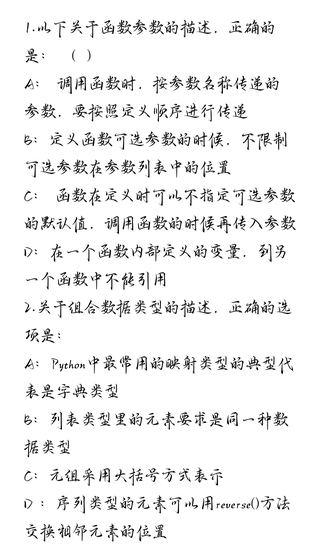 1.以下关于函数参数的描述，正确的
是： （ ）
A： 调用函数时，按参数名称传递的
参数，要按照定义顺序进行传递
B：定义函数可选参数的时候，不限制
可选参数在参数列表中的位置
C： 函数在定义时可以不指定可选参数
的默认值，调用函数的时候再传入参数
D：在一个函数内部定义的变量，到另
一个函数中不能引用
2.关于组合数据类型的描述，正确的选
项是：
A：Python中最常用的映射类型的典型代
表是字典类型
B：列表类型里的元素要求是同一种数
据类型
C：元组采用大括号方式表示
D ：序列类型的元素可以用reverse()方法
交换相邻元素的位置